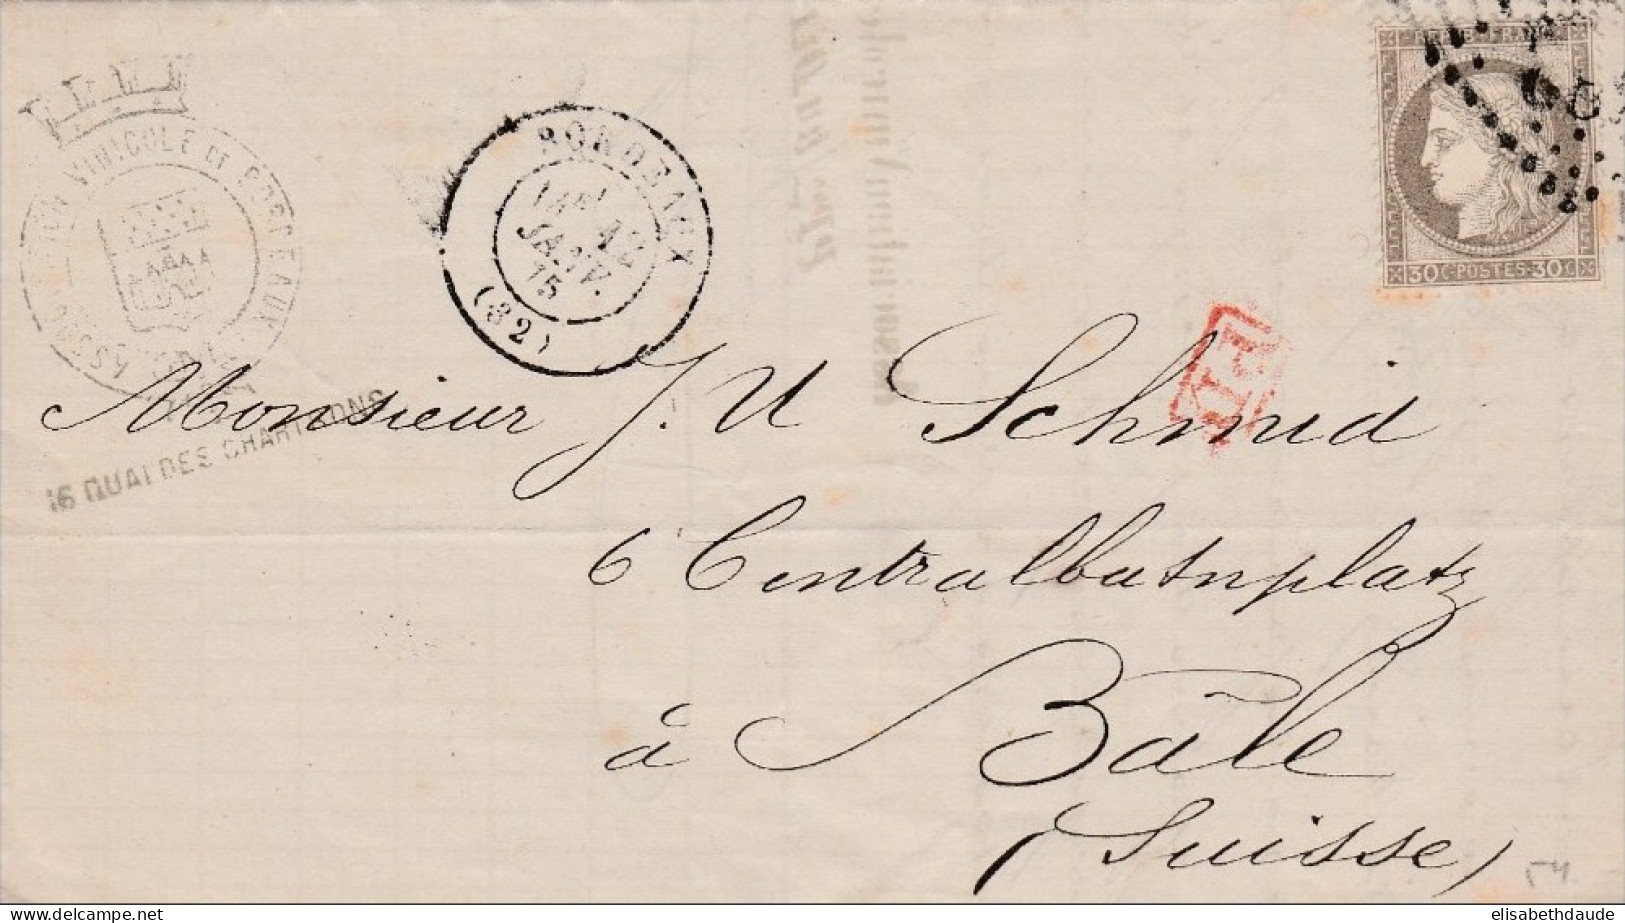 REPUB·FRANC·
30 C·POSTES·30 C
ASSOCIATION VINICOLE DE BORDEAUX
16 QUAI DES CHARTRONS
BORDEAUX
JANV.
75
(32)
PD
Monsieur J. U Schmid
6 Centralbahnplatz
à Bâle
(Suisse)
delcampe.net
elisabethdaude